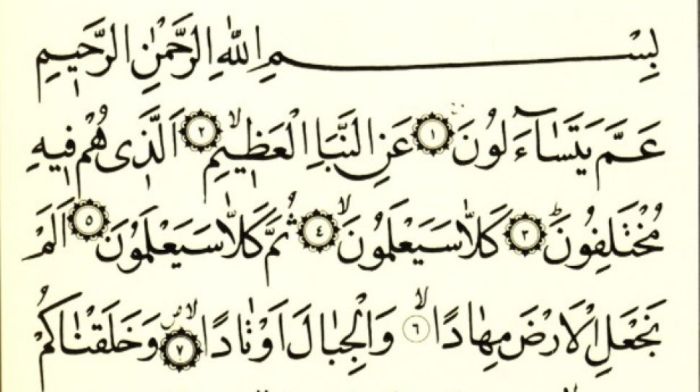 بِسْمِ اللّٰهِ الرَّحْمٰنِ الرَّحٖيمِ
عَمَّ يَتَسَٓاءَلُونَ ﴿١﴾ عَنِ النَّبَاِ الْعَظٖيمِۙ ﴿٢﴾ اَلَّذٖى هُمْ فٖيهِ
مُخْتَلِفُونَؕ ﴿٣﴾ كَلَّا سَيَعْلَمُونَۙ ﴿٤﴾ ثُمَّ كَلَّا سَيَعْلَمُونَ ﴿٥﴾ اَلَمْ
نَجْعَلِ الْاَرْضَ مِهَادًاۙ ﴿٦﴾ وَالْجِبَالَ اَوْتَادًاۙۖ ﴿٧﴾ وَخَلَقْنَاكُمْ